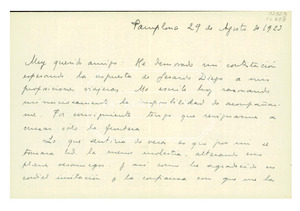 Pamplona 29 de Agosto de 1923
Muy querido amigo: He demorado mi contestación
esperando la respuesta de Gerardo Diego a mis
proposiciones viajeras. Me escribe hoy razonando
su imposibilidad de acompañar-
me. Por consiguiente tengo que resignarme a
cruzar solo la frontera.
Lo que sentiría de veras es que por mí se
tomara Ud. la menor molestia, alterando sus
planes veraniegos y así como le agradezco su
cordial invitación y la confianza con que me la